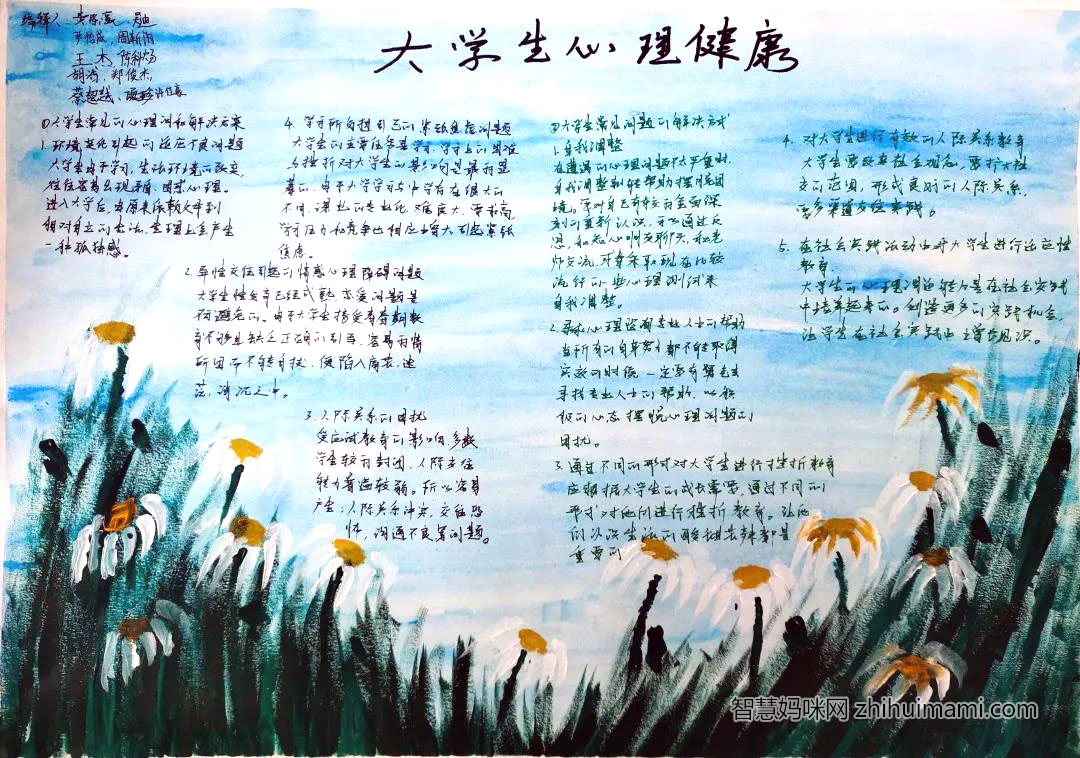 大学生心理健康
编辑人
王杰, 陈科炀
胡涛, 郑俊杰,
①大学生常见的心理问和解决方案
1. 环境变化引起的适应不良问题
大学生由于学习, 生活环境的改变,
往往容易出现矛盾, 困惑心理。
进入大学后, 由原来依赖父母到
相对自立的生活, 生理上会产生
一种孤独感。
2. 异性交往引起的情感心理障碍问题
大学生性发育已经成熟 恋爱问题是
回避免的。由于大学生接受青春期教
育不够且缺乏正确的引导, 容易为情
所困而不能自拔, 便陷入痛苦、迷
茫、消沉之中。
3. 人际关系的困扰
受应试教育的影响, 多数
学生较为封闭, 人际交往
能力普遍较弱。所以容易
产生: 人际关系冲突, 交往恐
怖, 沟通不良等问题。
4. 学习所自担引起的紧张焦虑问题
大学生的主要任务是学习, 学习上的困难
与挫折对大学生的影响是最为显
著的, 由于大学学习与中学存在很大的
不同, 课业的专业化, 难度大, 要求高,
学习压力和竞争也相应增大引起紧张
焦虑。
②大学生常见问题的解决方式
1. 自我调整
在遭遇的心理问题不太严重时,
自我调整则能帮助摆脱困
境, 要对自己有较为全面深
刻的重新认识, 可以通过反
思, 和知心朋友聊天, 和老
师交流, 可并采取现在比较
流行的一些心理测试来
自我调整。
2. 寻求心理咨询专业人士的帮助
当所有的自身努力都不能取得
实效的时候, 一定要有勇气去
寻找专业人士的帮助, 以积
极的心态摆脱心理问题的
困扰。
3. 通过不同的形式对大学生进行挫折教育
应根据大学生的成长需要, 通过不同的
形式对他们进行挫折教育。让他
们认识生活的酸甜苦辣都是
重要的
4. 对大学生进行有效的人际关系教育
大学生要改变社会观念, 要扩大社
交的范围, 形成良好的人际关系,
要多渠道交往实践。
5. 在社会实践活动中对大学生进行适应性
教育.
大学生的心理调适能力是在社会实践
中培养起来的。创造更多的实践机会,
让学生在社会实践中增长见识。
智慧妈咪网 zhihuimami.com